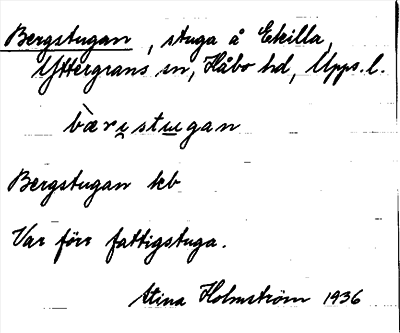 Bergstugan, stuga å Ekilla,
Yttergrans sn, Håbo hd, Upps. l.
bæ̀rı̣stu̲gan
Bergstugan kb
Var förr fattigstuga.
Stina Holmström 1936